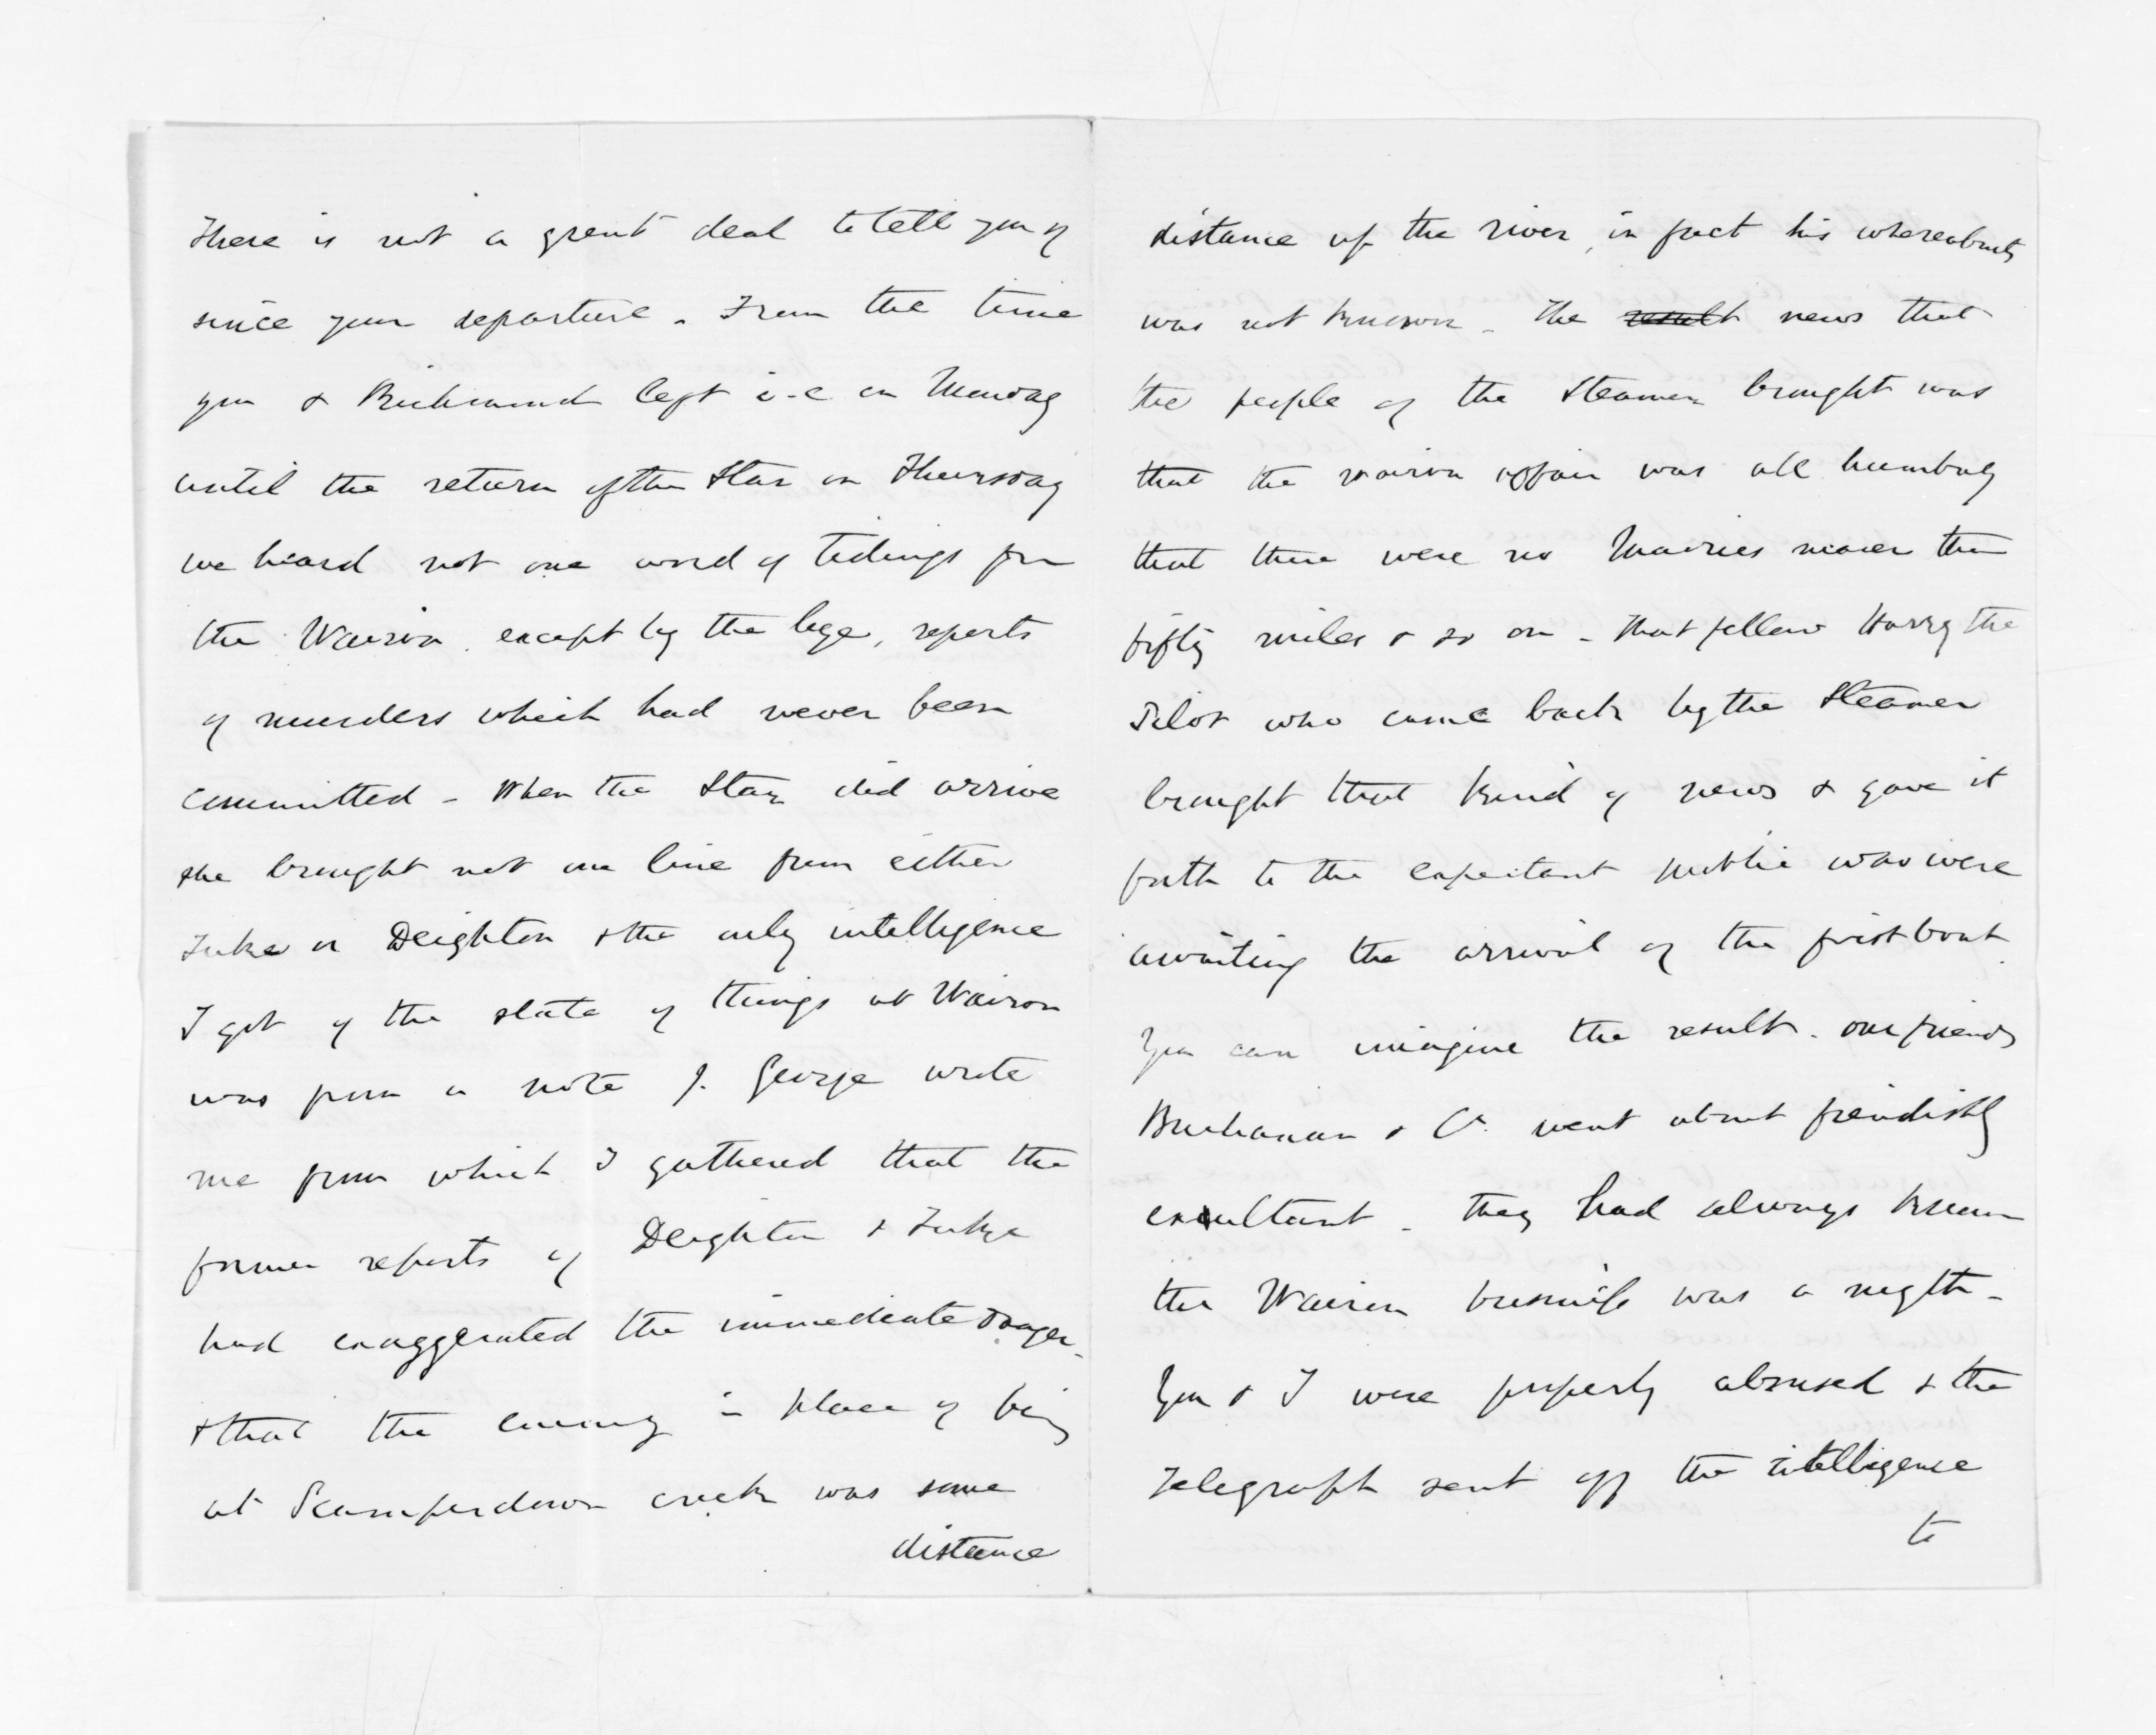 There is not a great deal to tell you of
since your departure. From the time
you & Richmond left i.e on Monday
until the return of the Star on Thursday
we heard not one word of tidings from
the Wairoa, except by the bye, reports
of murders which had never been
committed - When the Star did arrive
she brought not one line from either
Tuke or Deighton & the only intelligence
I got of the state of things at Wairoa
was from a note J. George wrote
me from which I gathered that the
former reports of Deighton & Tuke
had exaggerated the immediate danger
& that the enemy in place of being
at Scamperdown creek was some
distance
distance up the river, in fact his whereabouts
was not known - The result news that
the people of the Steamer brought was
that the Wairoa affair was all humbug
that there were no Maories nearer than
fifty miles & so on - That fellow Harry the
Pilot who came back by the Steamer
brought that kind of news & gave it
forth to the expectant public who were
awaiting the arrival of the first boat.
You can imagine the result. Our friends
Buchanan & Co. went about fiendishly
exultant - they had always known
the Wairoa business was a myth -
You & I were properly abused & the
Telegraph sent off the intelligence
to